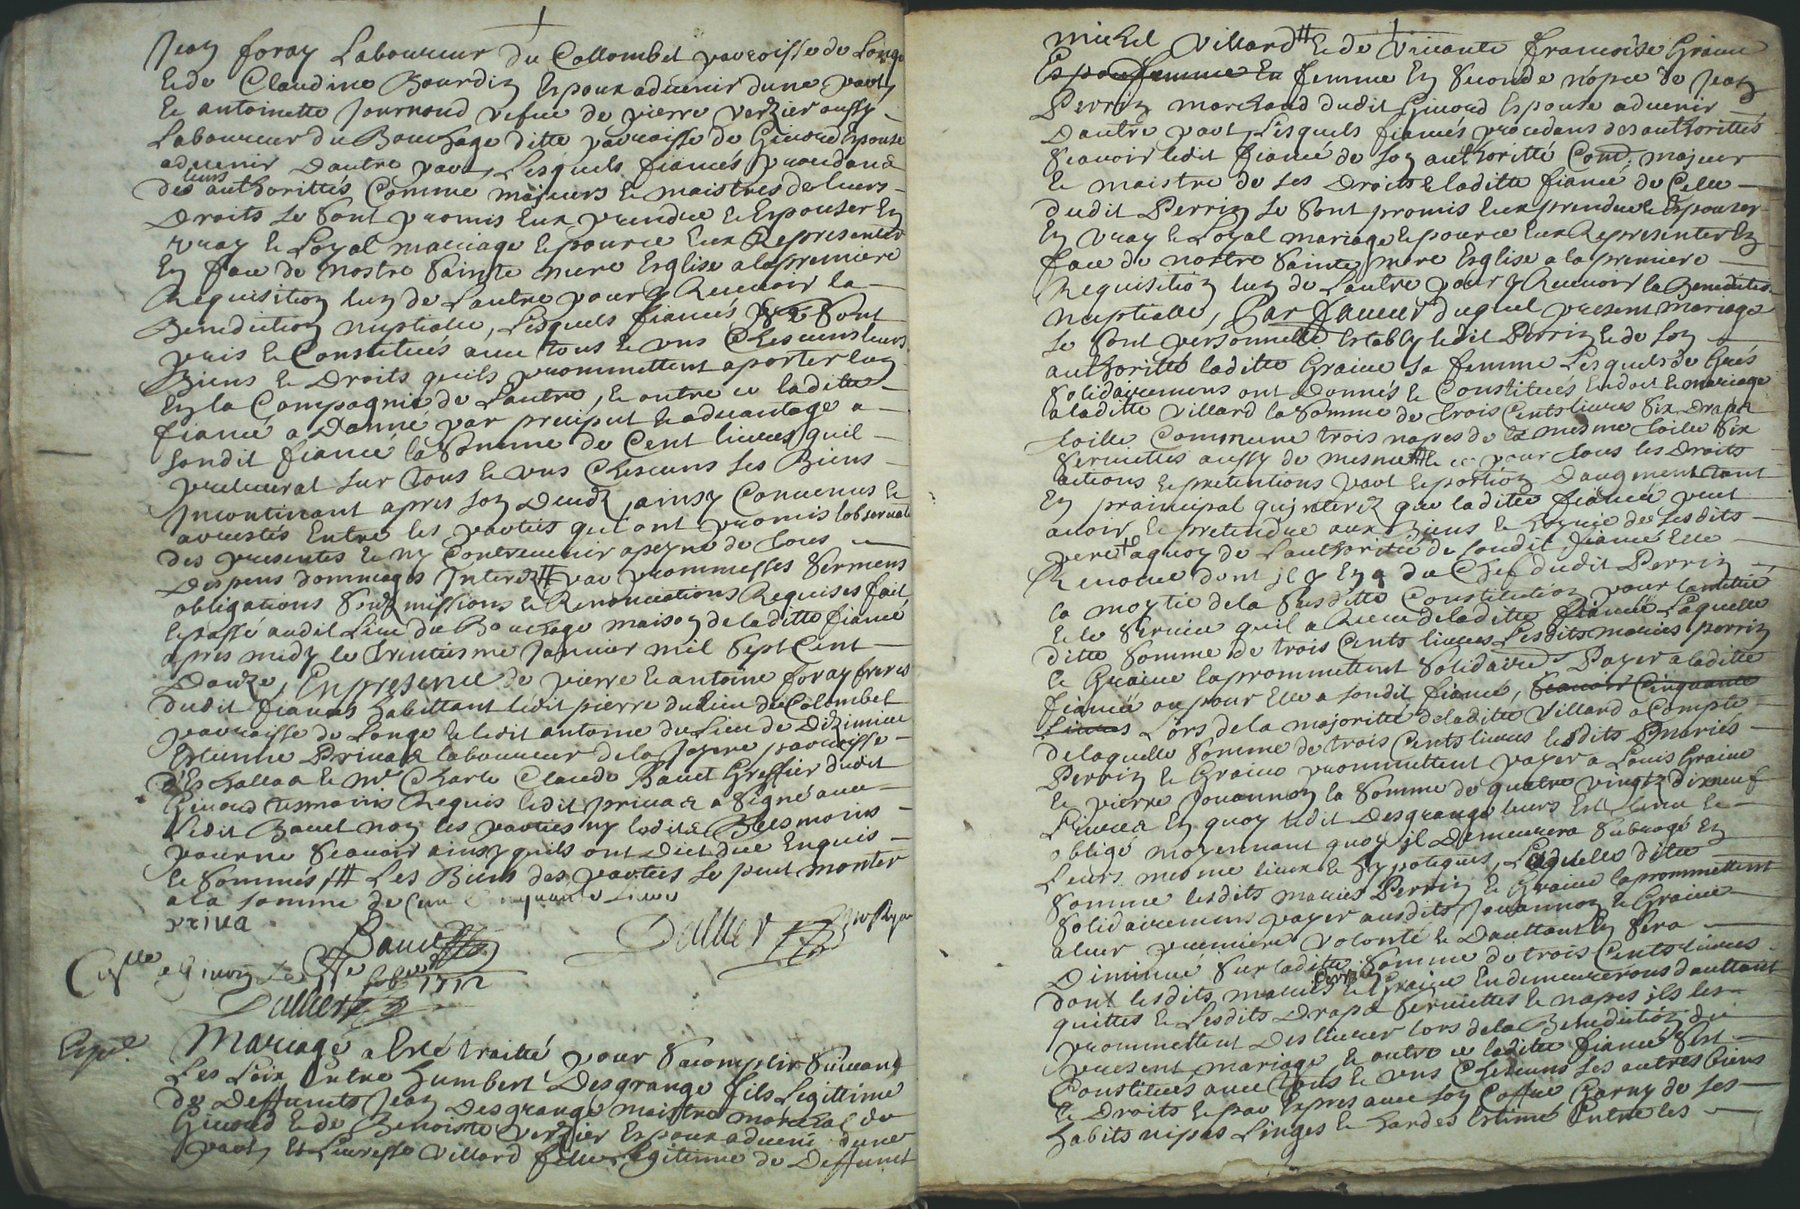 Jean foray Laboureur du Collombet parroisse de Longe
& de Claudine Bourdin Espoux aduenir dune part
& antoinette Journoud vefue de pierre Verzier aussy
Laboureur du Bouchage ditte parroisse de Giuord Espouse
aduenir Dautre part, Lesquels fiancés procedans
de leurs authorittés Comme majeurs & maistres de leurs
Droits se sont promis eux prendre & Espouser En
vray & Loyal mariage & pource Eux Representer
En face de nostre sainte mere Esglise a la premiere
Requisition lun de Lautre pour y Receuoir la
Benediction nuptialle, Lesquels fiancés se sont
pris & Constitués auec tous & vns Chescuns leurs
Biens & Droits quils promettent aporter lun
En la Compagnie de Lautre, & outre ce laditte
fiancé a Donné par preciput & aduantage a
sondit fiancé la somme de Cent liures quil
preleuerat sur tous & vns Chescuns ses Biens
Incontinant apres son Decedz, ainsy Conuenus &
arrestés Entre les parties qui ont promis lobseruation
des presentes & ny Contreuenir apeyne de tous
Despens dommages Interestz par prommesses sermens
obligations soubzmissions & Renonciations Requises fait
& passé audit Lieu du Bouchage maison de laditte fiancé
apres midy le Trentiesme Januier mil sept Cent
Douze, En presence de pierre & antoine foray freres
dudit fiancé habittant ledit pierre du Lieu du Colombet
parroisse de Longe & ledit antoine du Lieu de Dizimieu
Estienne Priuat laboureur de la parroisse
d'Eschallas & Mr Charle Claude Bauet Greffier dudit
Giuord tesmoins Requis ledit priuat a signé auec
ledit Bauet non les parties ny lesdits Tesmoins
pour ne scauoir ainsy quils ont Dict due Enquis
& sommés /# Les Biens des parties se peut monter
a la somme de Cent Cinquante Liures
priua
Bauet
Dallier
Not Royal
Collé a Giuord Le feb. 1712
Dallier
Exped.
Mariage a Esté traitté pour sacomplir suiuant
Les Loix Entre humbert Desgrange fils Legittime
de Deffuncts Jean Desgrange maistre marechal de
Giuord & de Benoiste verzier Espoux aduenir dune
part, Et Lucresse Villard fille Legitime de Deffunct
michel Villard & de Viuante francoise Graine
Espou femme En femme En seconde nopce de Jean
Perrin marchand dudit Giuord Espouse aduenir
Dautre part Lesquels fiancés procedans des authorittés
scauoir ledit fiancé de son authoritté Comme majeur
& maistre de ses Droits & laditte fiancé de Celle
dudit Perrin se sont promis eux prendre & Espouser
En vray & Loyal mariage & pource Eux Representer En
face de nostre sainte mere Esglise a la premiere
Requisition lun de Lautre pour y Receuoir la Benediction
nuptialle, Par faueur duquel present mariage
se sont personnelle Establÿ ledit Perrin & de son
authoritté laditte Graine sa femme Lesquels de Grés
solidairement ont Donnés & Constitués En dot & mariage
a laditte Villard la somme de trois Cents liures six Draps
toille Commune trois napes de la mesme toille six
seruiettes aussy de mesme & ce pour tous les Droits
actions & pretentions part & portion Daugment tant
En prainicipal quinterez que laditte fiancé peut
auoir & pretendre aux Biens & hoyrie de sesdits
pere aquoy de Lauthoritté de sondit fiancé Elle
Renonce dont il y En a du Chef dudit Perrin
la moytie de la susditte Constitution pour lamitié
& le seruice quil a Receu de laditte fiancé Laquelle
ditte somme de trois Cents liures Lesdits mariés perrin
& Graine la promettent solidaire Payer a laditte
fiancé ou pour Elle a sondit fiancé, scauoir Cinquante
Liures Lors de la majoritté de laditte Villard a Compte
de laquelle somme de trois Cents liures lesdits mariés
Perrin & Graine promettent payer a Louis Graine
& pierre Jouannon la somme de quatre vingtz dix neuf
Liures En quoy ledit Desgrange leurs Est tenu &
obligé moyennant quoy il Demeurera subrogé En
Leurs mesme lieux & hypoteques, Laquelles ditte
somme lesdits mariés Perrin & Graine la promettent
solidairement payer ausdits Jouannon & Graine
a leur premiere volonté & Dauttant En sera
Diminué sur laditte somme de trois Cents liures
dont lesdits mariés Perrin & Graine En demeureront dauttant
quittes & Lesdits Draps seruiettes & napes ils les
promettent Desliurer lors de la Benediction du
present mariage, & outre ce laditte fiancé sest
Constituée auec touts & vns Chescuns ses autres biens
& Droits & par Expres auec son Coffre Garny de ses
habits nipes Linges & hardes Estimé Entre les